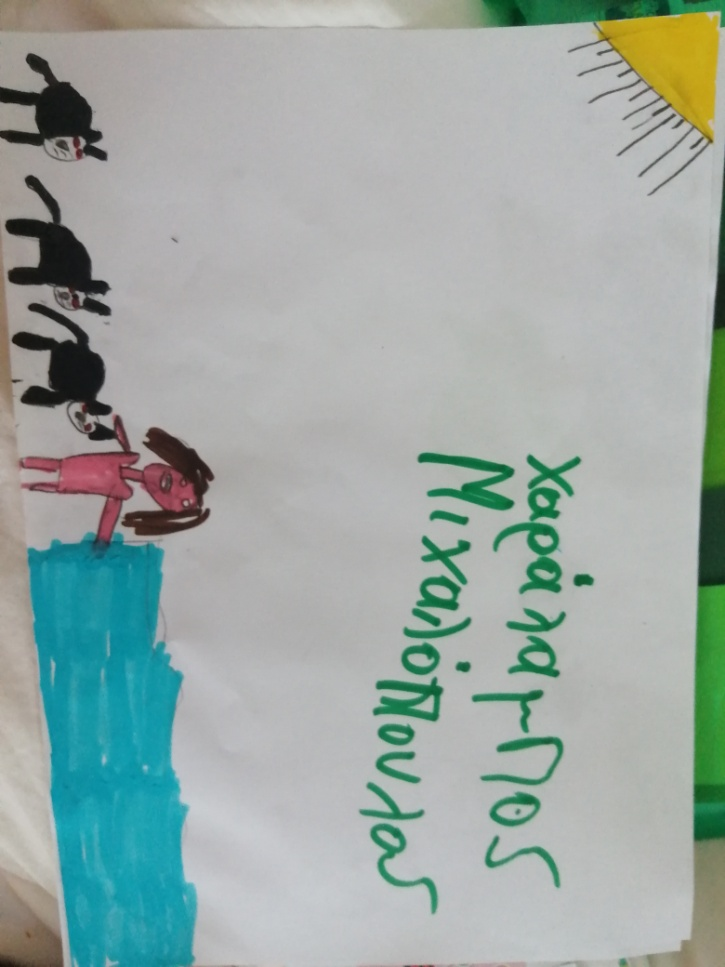 Χαράλαμπος
Μιχαλόπουλος